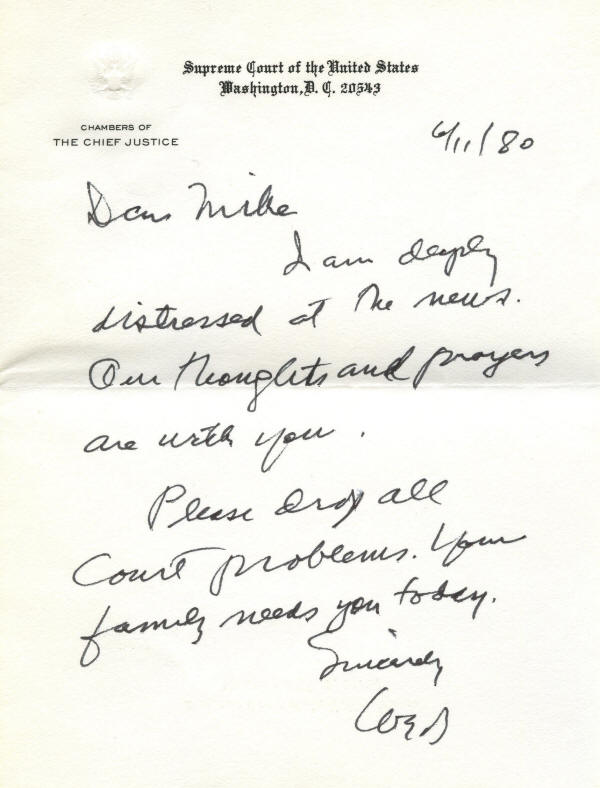 Supreme Court of the United States
Washington, D. C. 20543
CHAMBERS OF
THE CHIEF JUSTICE
6/11/80
Dear Mike
I am deeply
distressed at the news.
Our thoughts and prayers
are with you.
Please drop all
Court problems. Your
family needs you today.
Sincerely
WEB